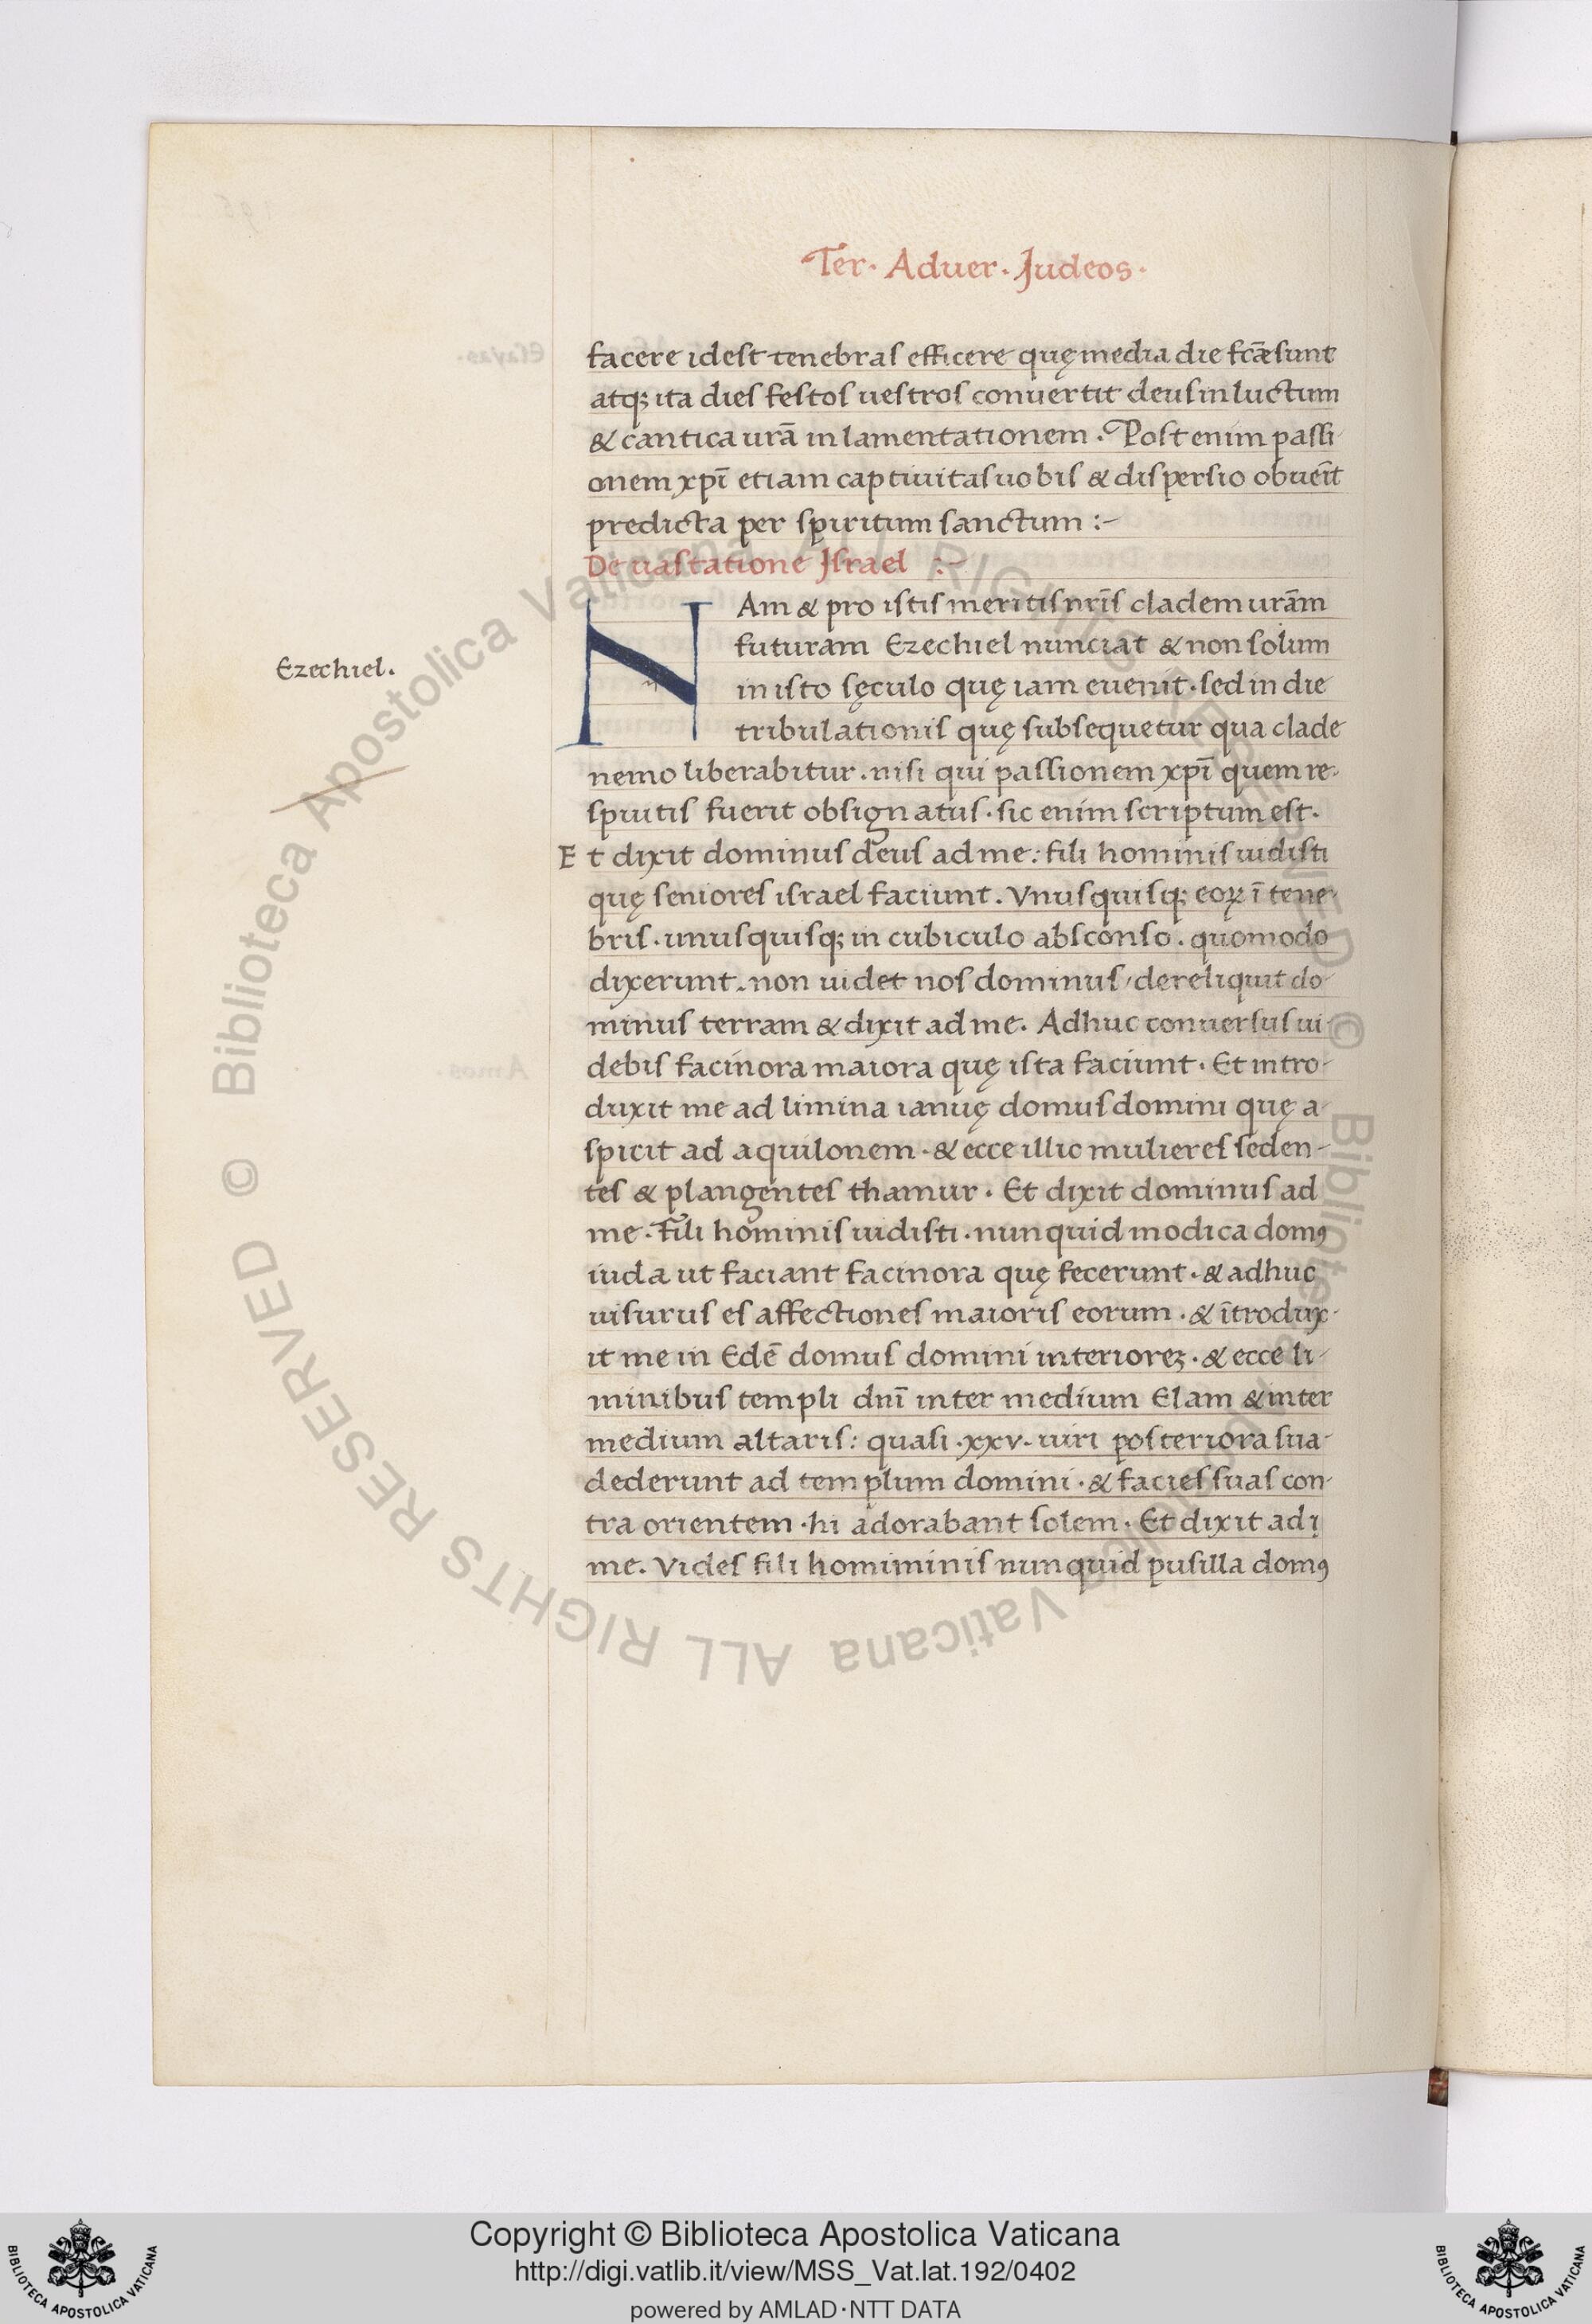 Ter. Aduer. Judeos.
facere idest tenebras efficere quę media die fcǣ sunt
atq; ita dies festos uestros conuertit deus in luctum
& cantica urā in lamentationem. Post enim passi-
onem xpī etiam captiuitas uobis & dispersio obuēit
predicta per spiritum sanctum :-
De uastatione Jsrael :-
NAm & pro istis meritis nr̄is cladem urām
futuram Ezechiel nunciat & non solum
Ezechiel.
in isto sęculo quę iam euenit. sed in die
tribulationis quę subsequetur qua clade
nemo liberabitur. nisi qui passionem xpī quem re-
spuitis fuerit obsignatus. sic enim scriptum est.
Et dixit dominus deus ad me: fili hominis uidisti
quę seniores israel faciunt. Vnusquisq; eoꝝ ī tene-
bris. unusquisq; in cubiculo absconso. quomodo
dixerunt. non uidet nos dominus, dereliquit do-
minus terram & dixit ad me. Adhuc conuersus ui-
debis facinora maiora quę ista faciunt. Et intro-
duxit me ad limina ianuę domus domini quę a-
spicit ad aquilonem. & ecce illic mulieres seden-
tes & plangentes thamur. Et dixit dominus ad
me. Fili hominis uidisti. nunquid modica domꝰ
iuda ut faciant facinora quę fecerunt. & adhuc
uisurus es affectiones maioris eorum. & ītrodux-
it me in Edē domus domini interioreꝫ. & ecce li-
minibus templi dnī inter medium Elam & inter
medium altaris: quasi .xxv. uiri posteriora sua-
dederunt ad templum domini. & facies suas con-
tra orientem. hi adorabant solem. Et dixit ad
me. Vides fili homiminis nunquid pusilla domꝰ
© Biblioteca Apostolica Vaticana ALL RIGHTS RESERVED © Biblioteca Apostolica Vaticana ALL RIGHTS RESERVED
Copyright © Biblioteca Apostolica Vaticana
http://digi.vatlib.it/view/MSS_Vat.lat.192/0402
powered by AMLAD·NTT DATA
BIBLIOTECA APOSTOLICA VATICANA
BIBLIOTECA APOSTOLICA VATICANA